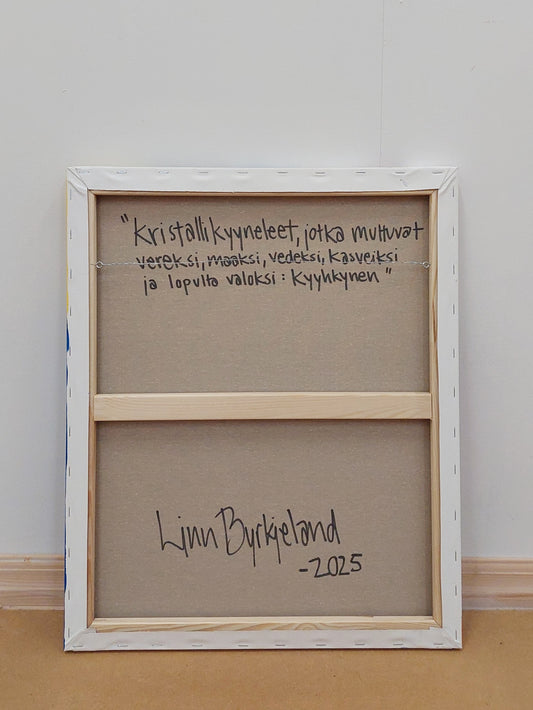 "Kristallikyyneleet, jotka muttuvat
vereksi, maaksi, vedeksi, kasveiksi
ja lopulta valoksi : Kyyhkynen"
Linn Byrkjeland
-2025